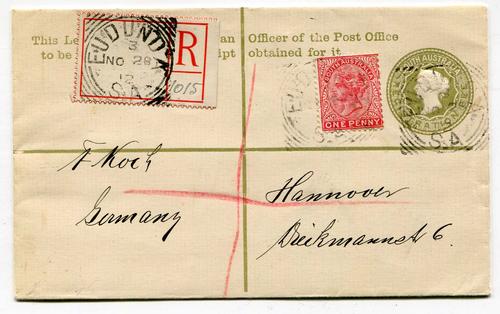 This Le an Officer of the Post Office
to be ipt obtained for it.
EUDUNDA
3
NO 28
12
S.A.
R
1015
SOUTH AUSTRALIA
ONE PENNY
SOUTH AUSTRALIA
S.A
F Koch
Hannover
Germany